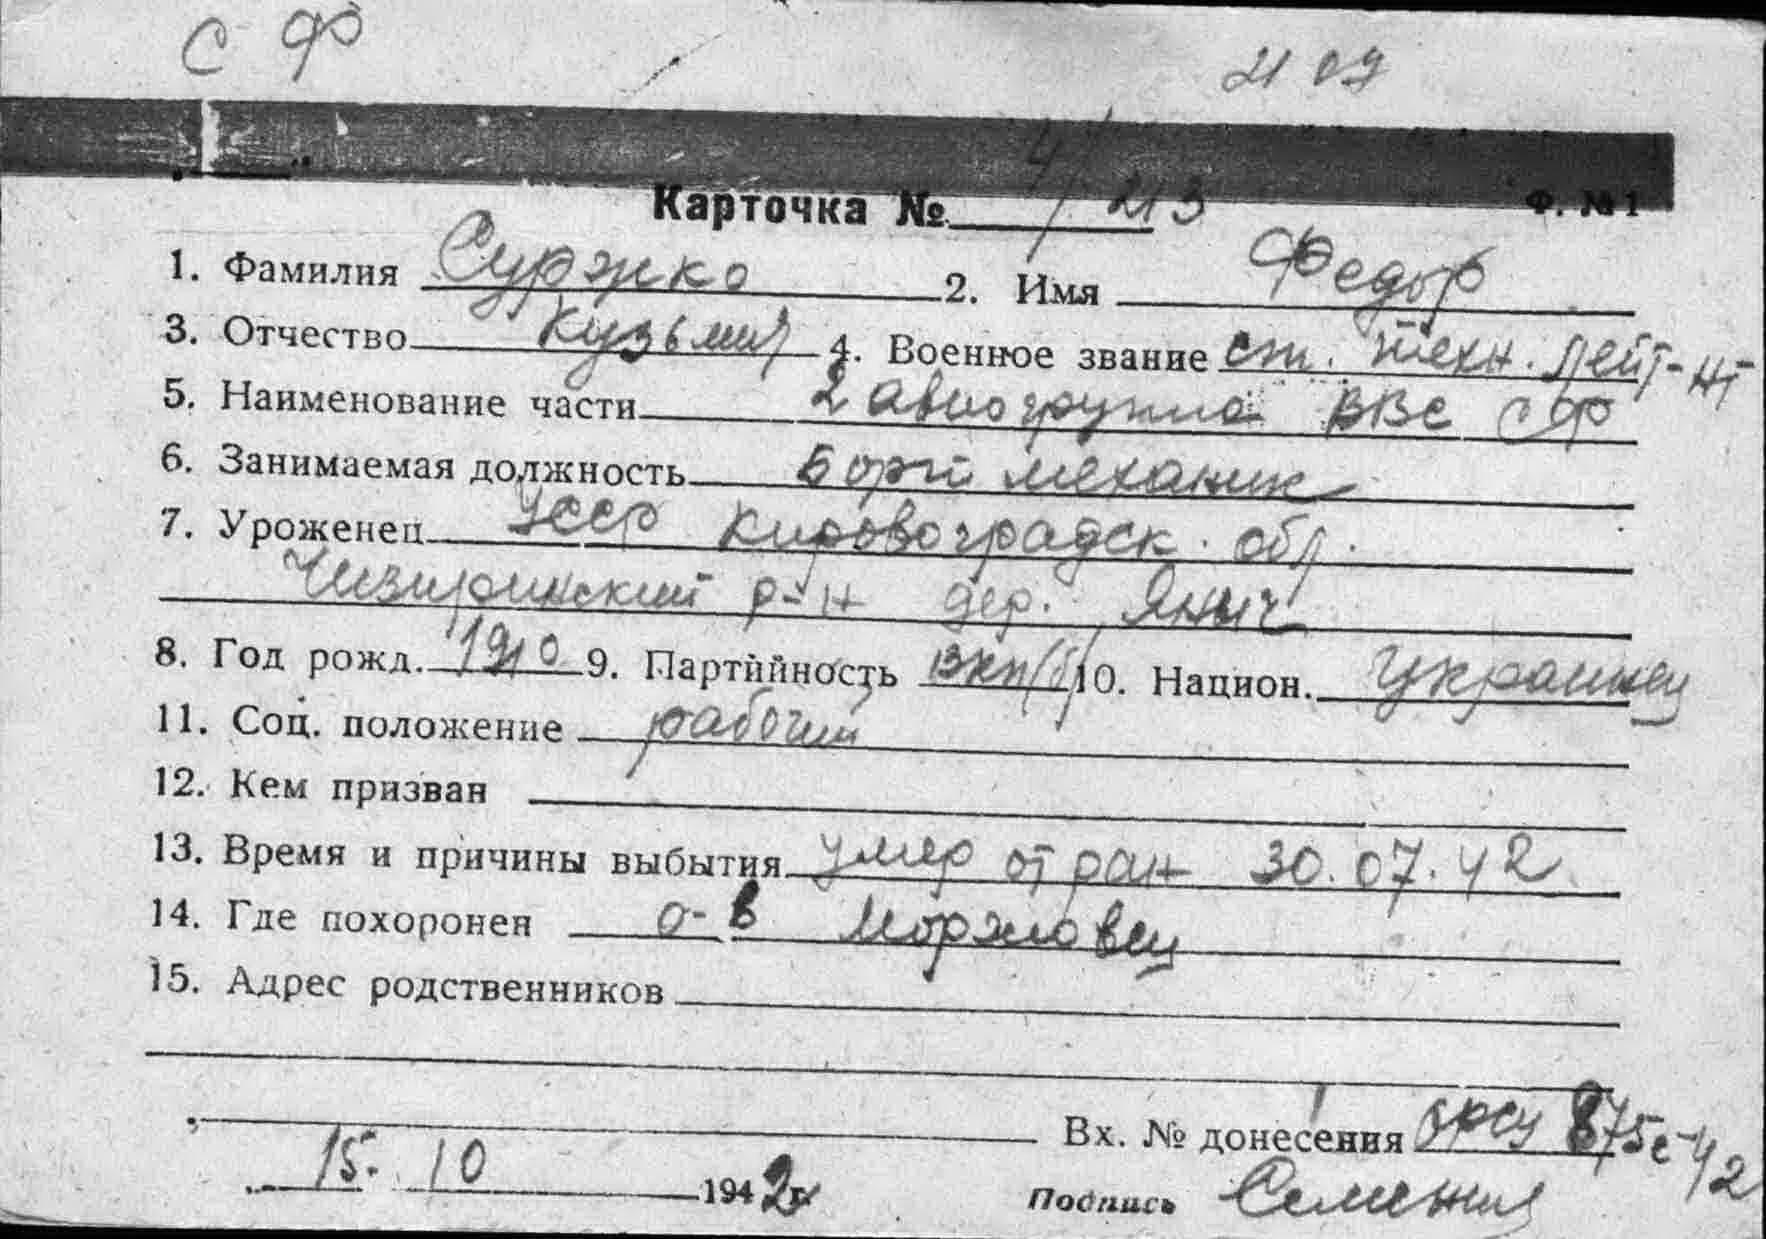 С Ф
21 07
Карточка № 4/213 Ф. № 1
1. Фамилия Суржко 2. Имя Федор
3. Отчество Кузьмич 4. Военное звание ст. техн. лейт-нт
5. Наименование части 2 авиогруппа ВВС СФ
6. Занимаемая должность Борт механик
7. Уроженец УССР Кировоградск. обл.
Чизиринский р-н дер. Яныч
8. Год рожд. 1910 9. Партийность ВКП(б) 10. Национ. Украинец
11. Соц. положение рабочий
12. Кем призван
13. Время и причины выбытия умер от ран 30.07.42
14. Где похоронен о-в Моржовец
15. Адрес родственников
Вх. № донесения 875с-42
15. 10 1942г.
Подпись